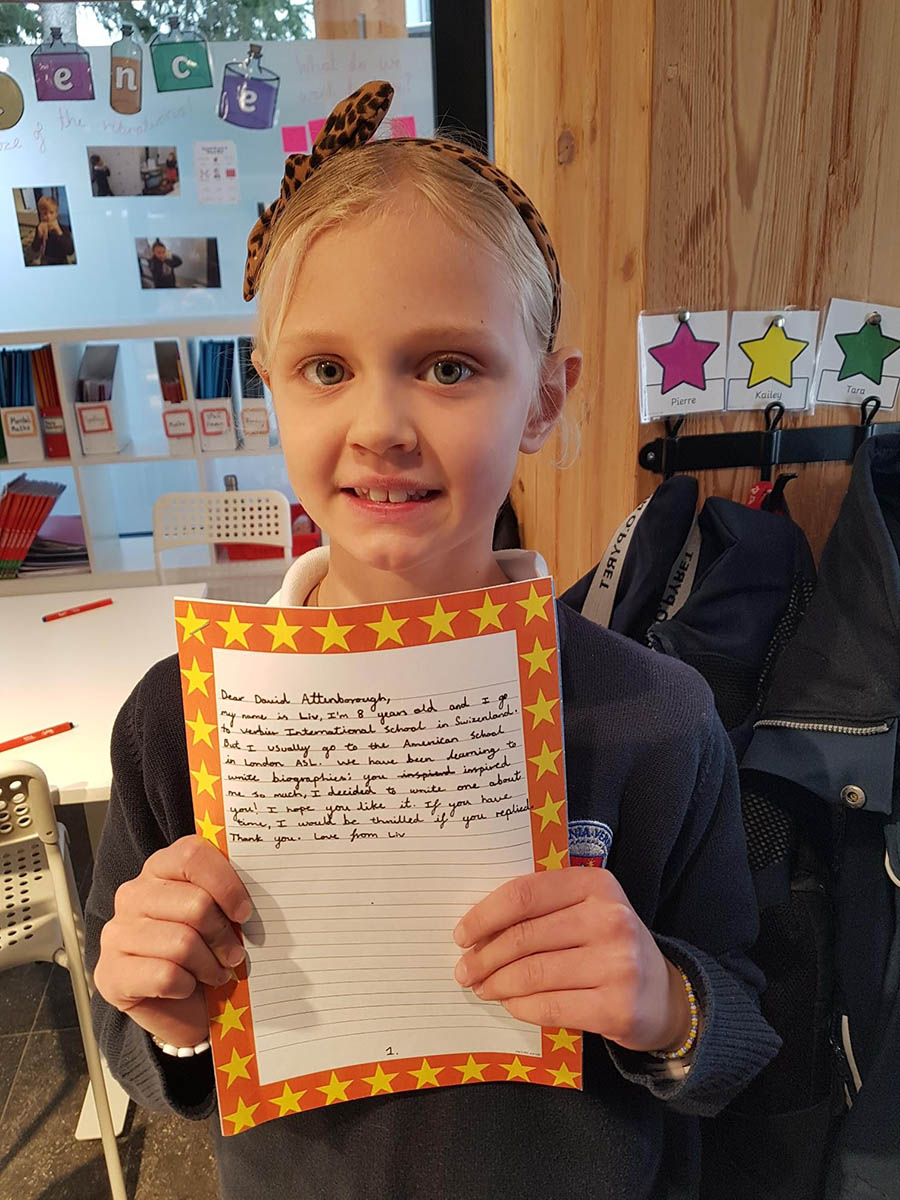 e
n
c
e
What do we
of the vibrations!
Pierre
Kailey
Tara
Mental
Maths
Maths
O.PYRET
O.PYRET
Dear David Attenborough,
my name is Liv, I'm 8 years old and I go
to verbier International School in Swizenland.
But I usually go to the American School
in London ASL. We have been learning to
write biographies: you inspierd inspired
me so much, I decided to write one about
you! I hope you like it. If you have
time, I would be thrilled if you replied.
Thank you. Love from Liv
1.